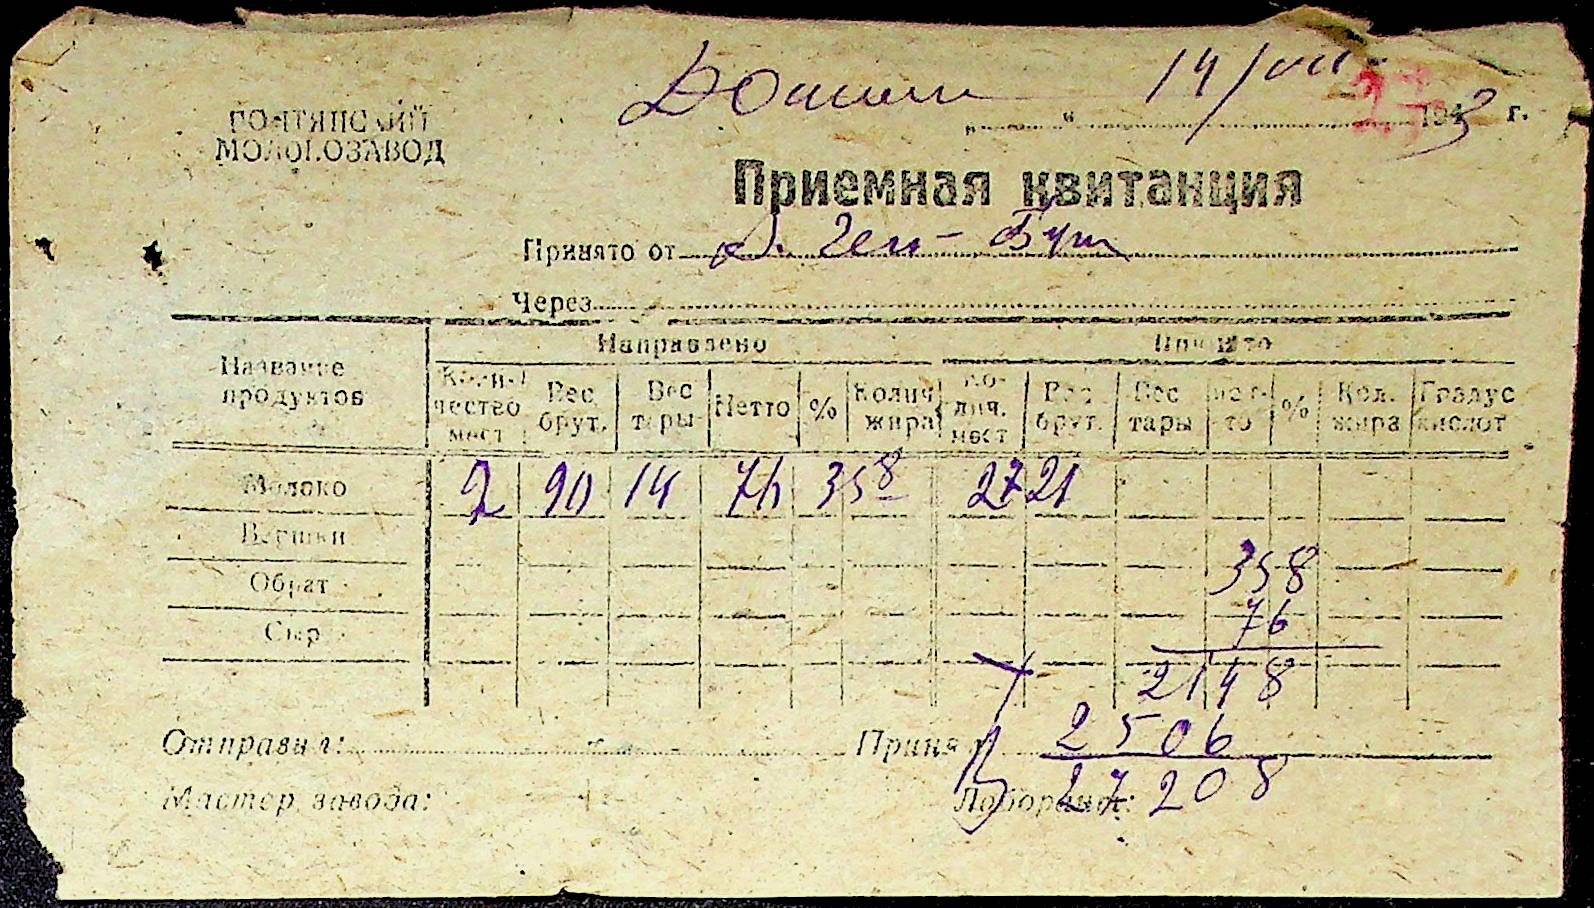 14/VII 1943 г.
МОЛОКОЗАВОД
Приемная квитанция
Принято от
Через
Название продуктов Направлено Принято
Количество мест Вес брут. Вес тары Нетто % Колич. жира Колич. мест Вес брут. Вес тары Нетто % Кол. жира Градус кислот
Молоко 2 90 14 76 358 2721
Вершки
358
Обрат
76
Сыр
2148
2506
Отправил: Принял
27208
Мастер завода: Лаборант: